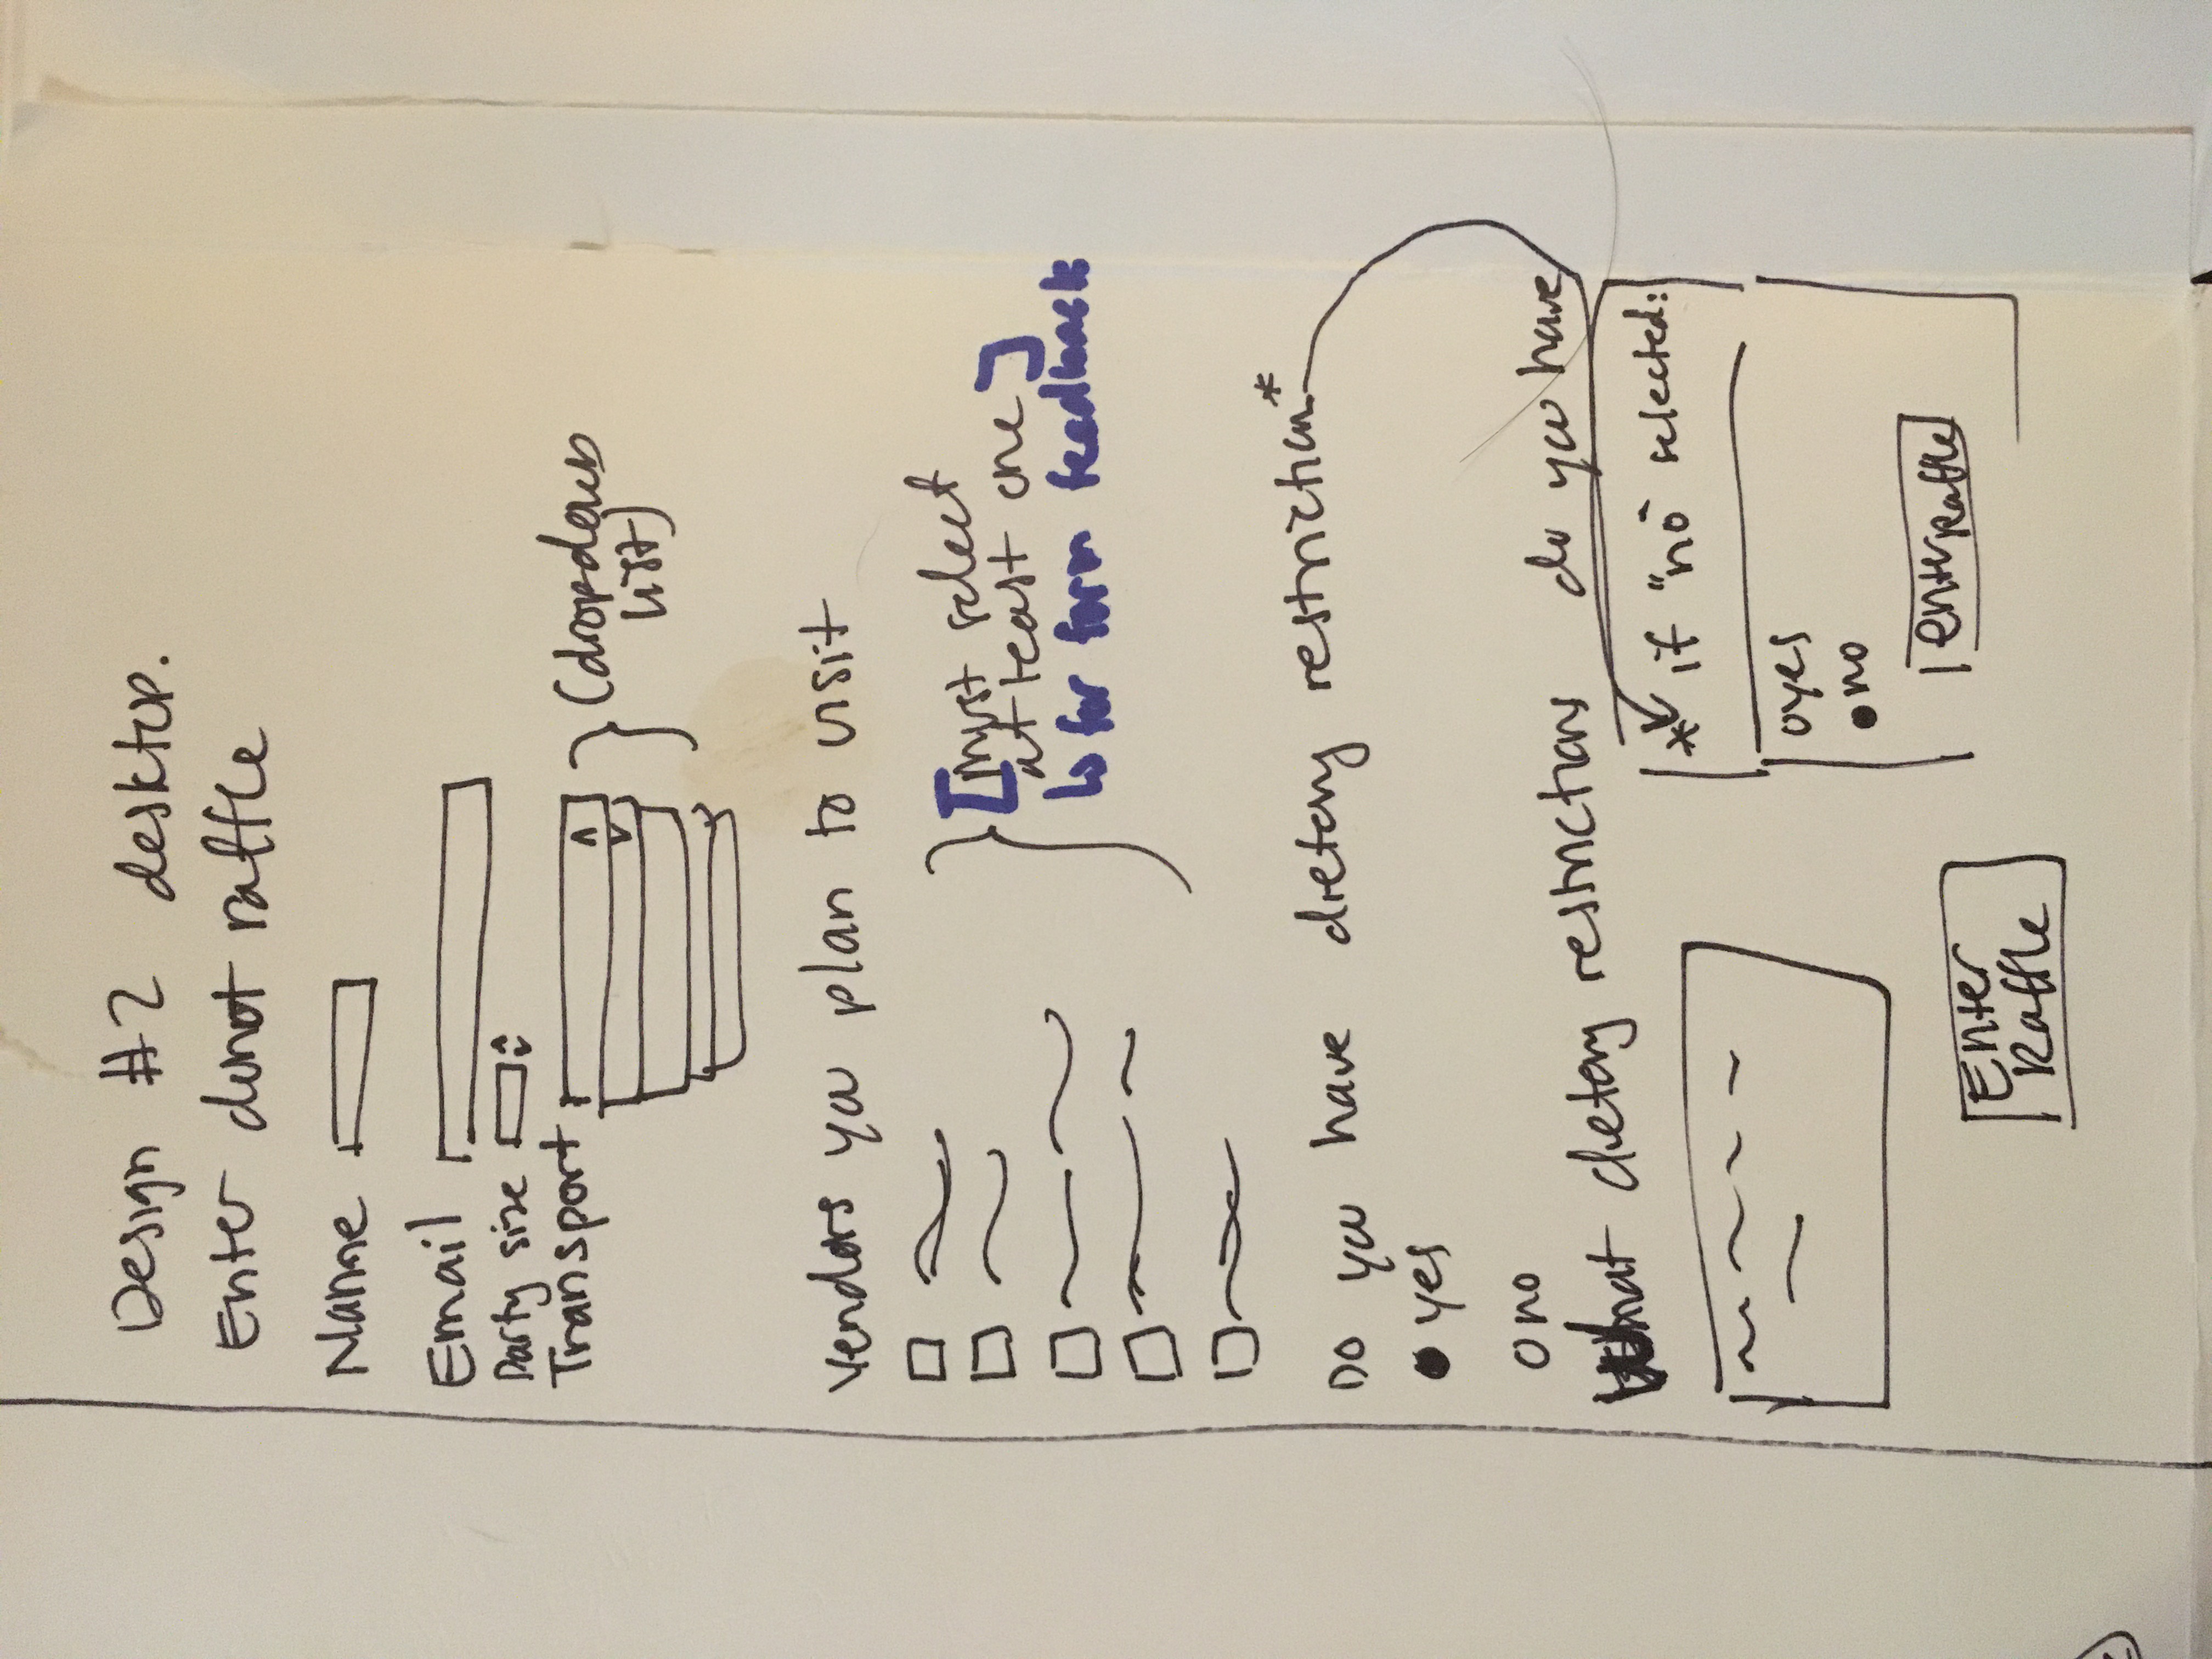 Design #2 desktop.
Enter donot raffle
Name
Email
Party size
Transport
(dropdown
list)
Vendors you plan to visit
[must select
at least one]
↳ for form feedback
Do you have dietary restriction*
yes
no
What dietary restrictions do you have
* if "no" selected:
yes
no
Enter Raffle
Enter
Raffle